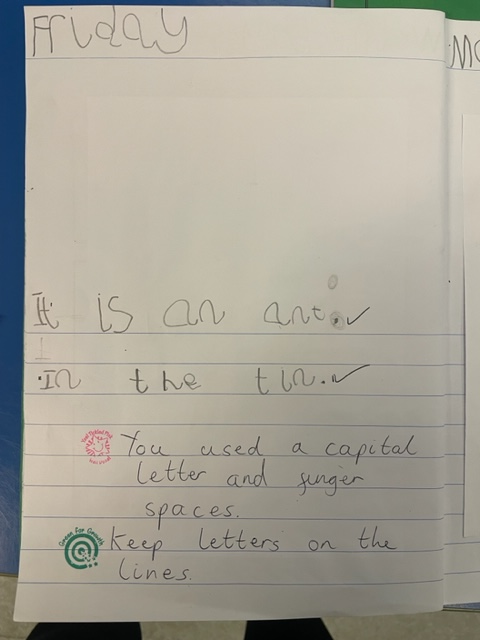 Friday
It is an ant.
In the tin.
You used a capital
letter and finger
spaces.
Green For Growth
Keep letters on the
lines.